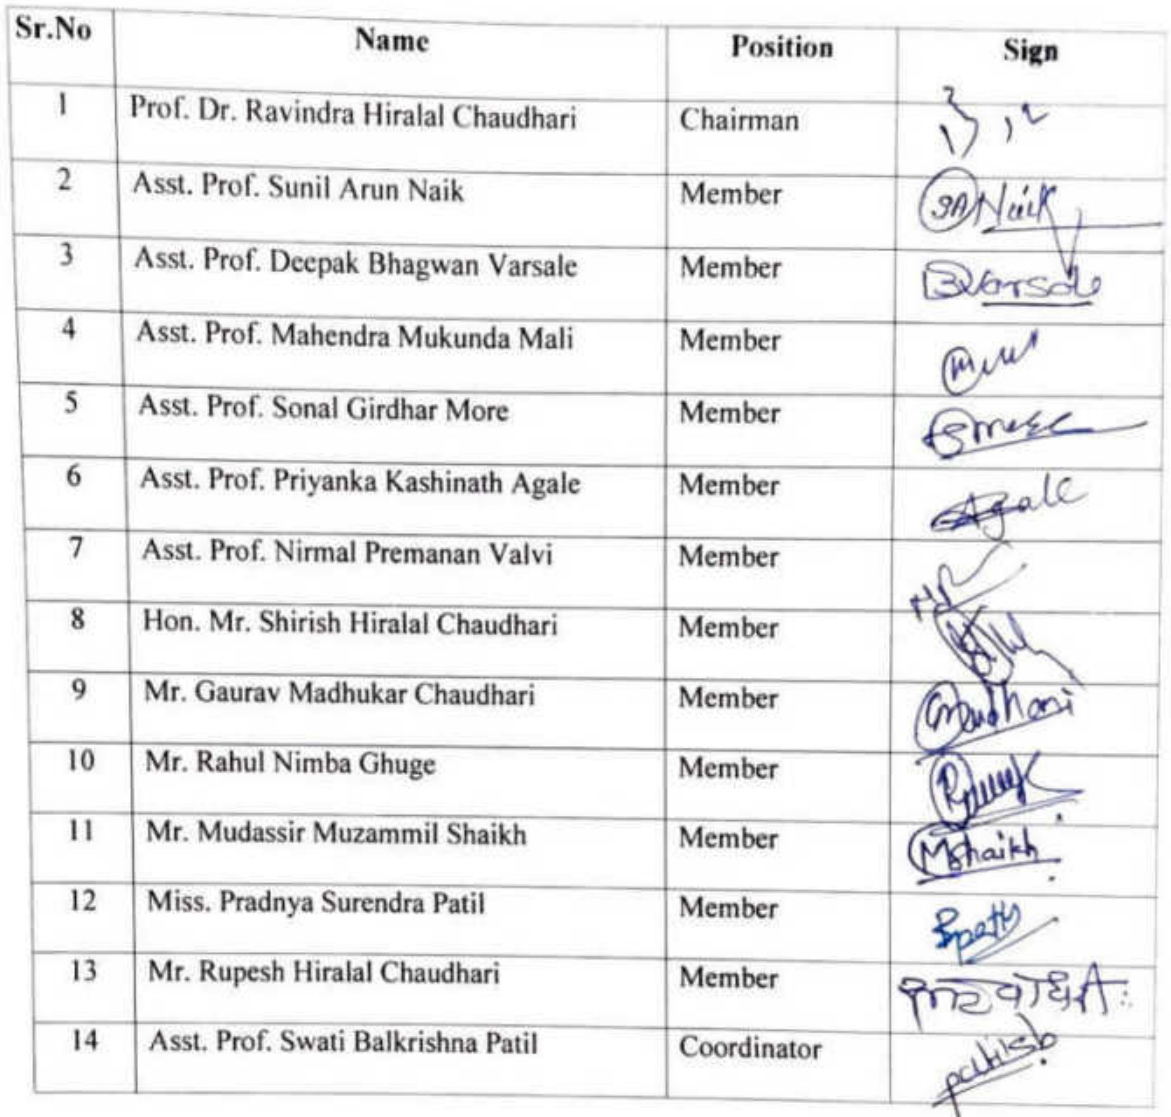 Sr.No Name Position Sign
1 Prof. Dr. Ravindra Hiralal Chaudhari Chairman
2 Asst. Prof. Sunil Arun Naik Member SANaik
3 Asst. Prof. Deepak Bhagwan Varsale Member DBVarsale
4 Asst. Prof. Mahendra Mukunda Mali Member
5 Asst. Prof. Sonal Girdhar More Member
6 Asst. Prof. Priyanka Kashinath Agale Member Agale
7 Asst. Prof. Nirmal Premanan Valvi Member
8 Hon. Mr. Shirish Hiralal Chaudhari Member
9 Mr. Gaurav Madhukar Chaudhari Member
10 Mr. Rahul Nimba Ghuge Member
11 Mr. Mudassir Muzammil Shaikh Member Mshaikh
12 Miss. Pradnya Surendra Patil Member
13 Mr. Rupesh Hiralal Chaudhari Member
14 Asst. Prof. Swati Balkrishna Patil Coordinator patilsb